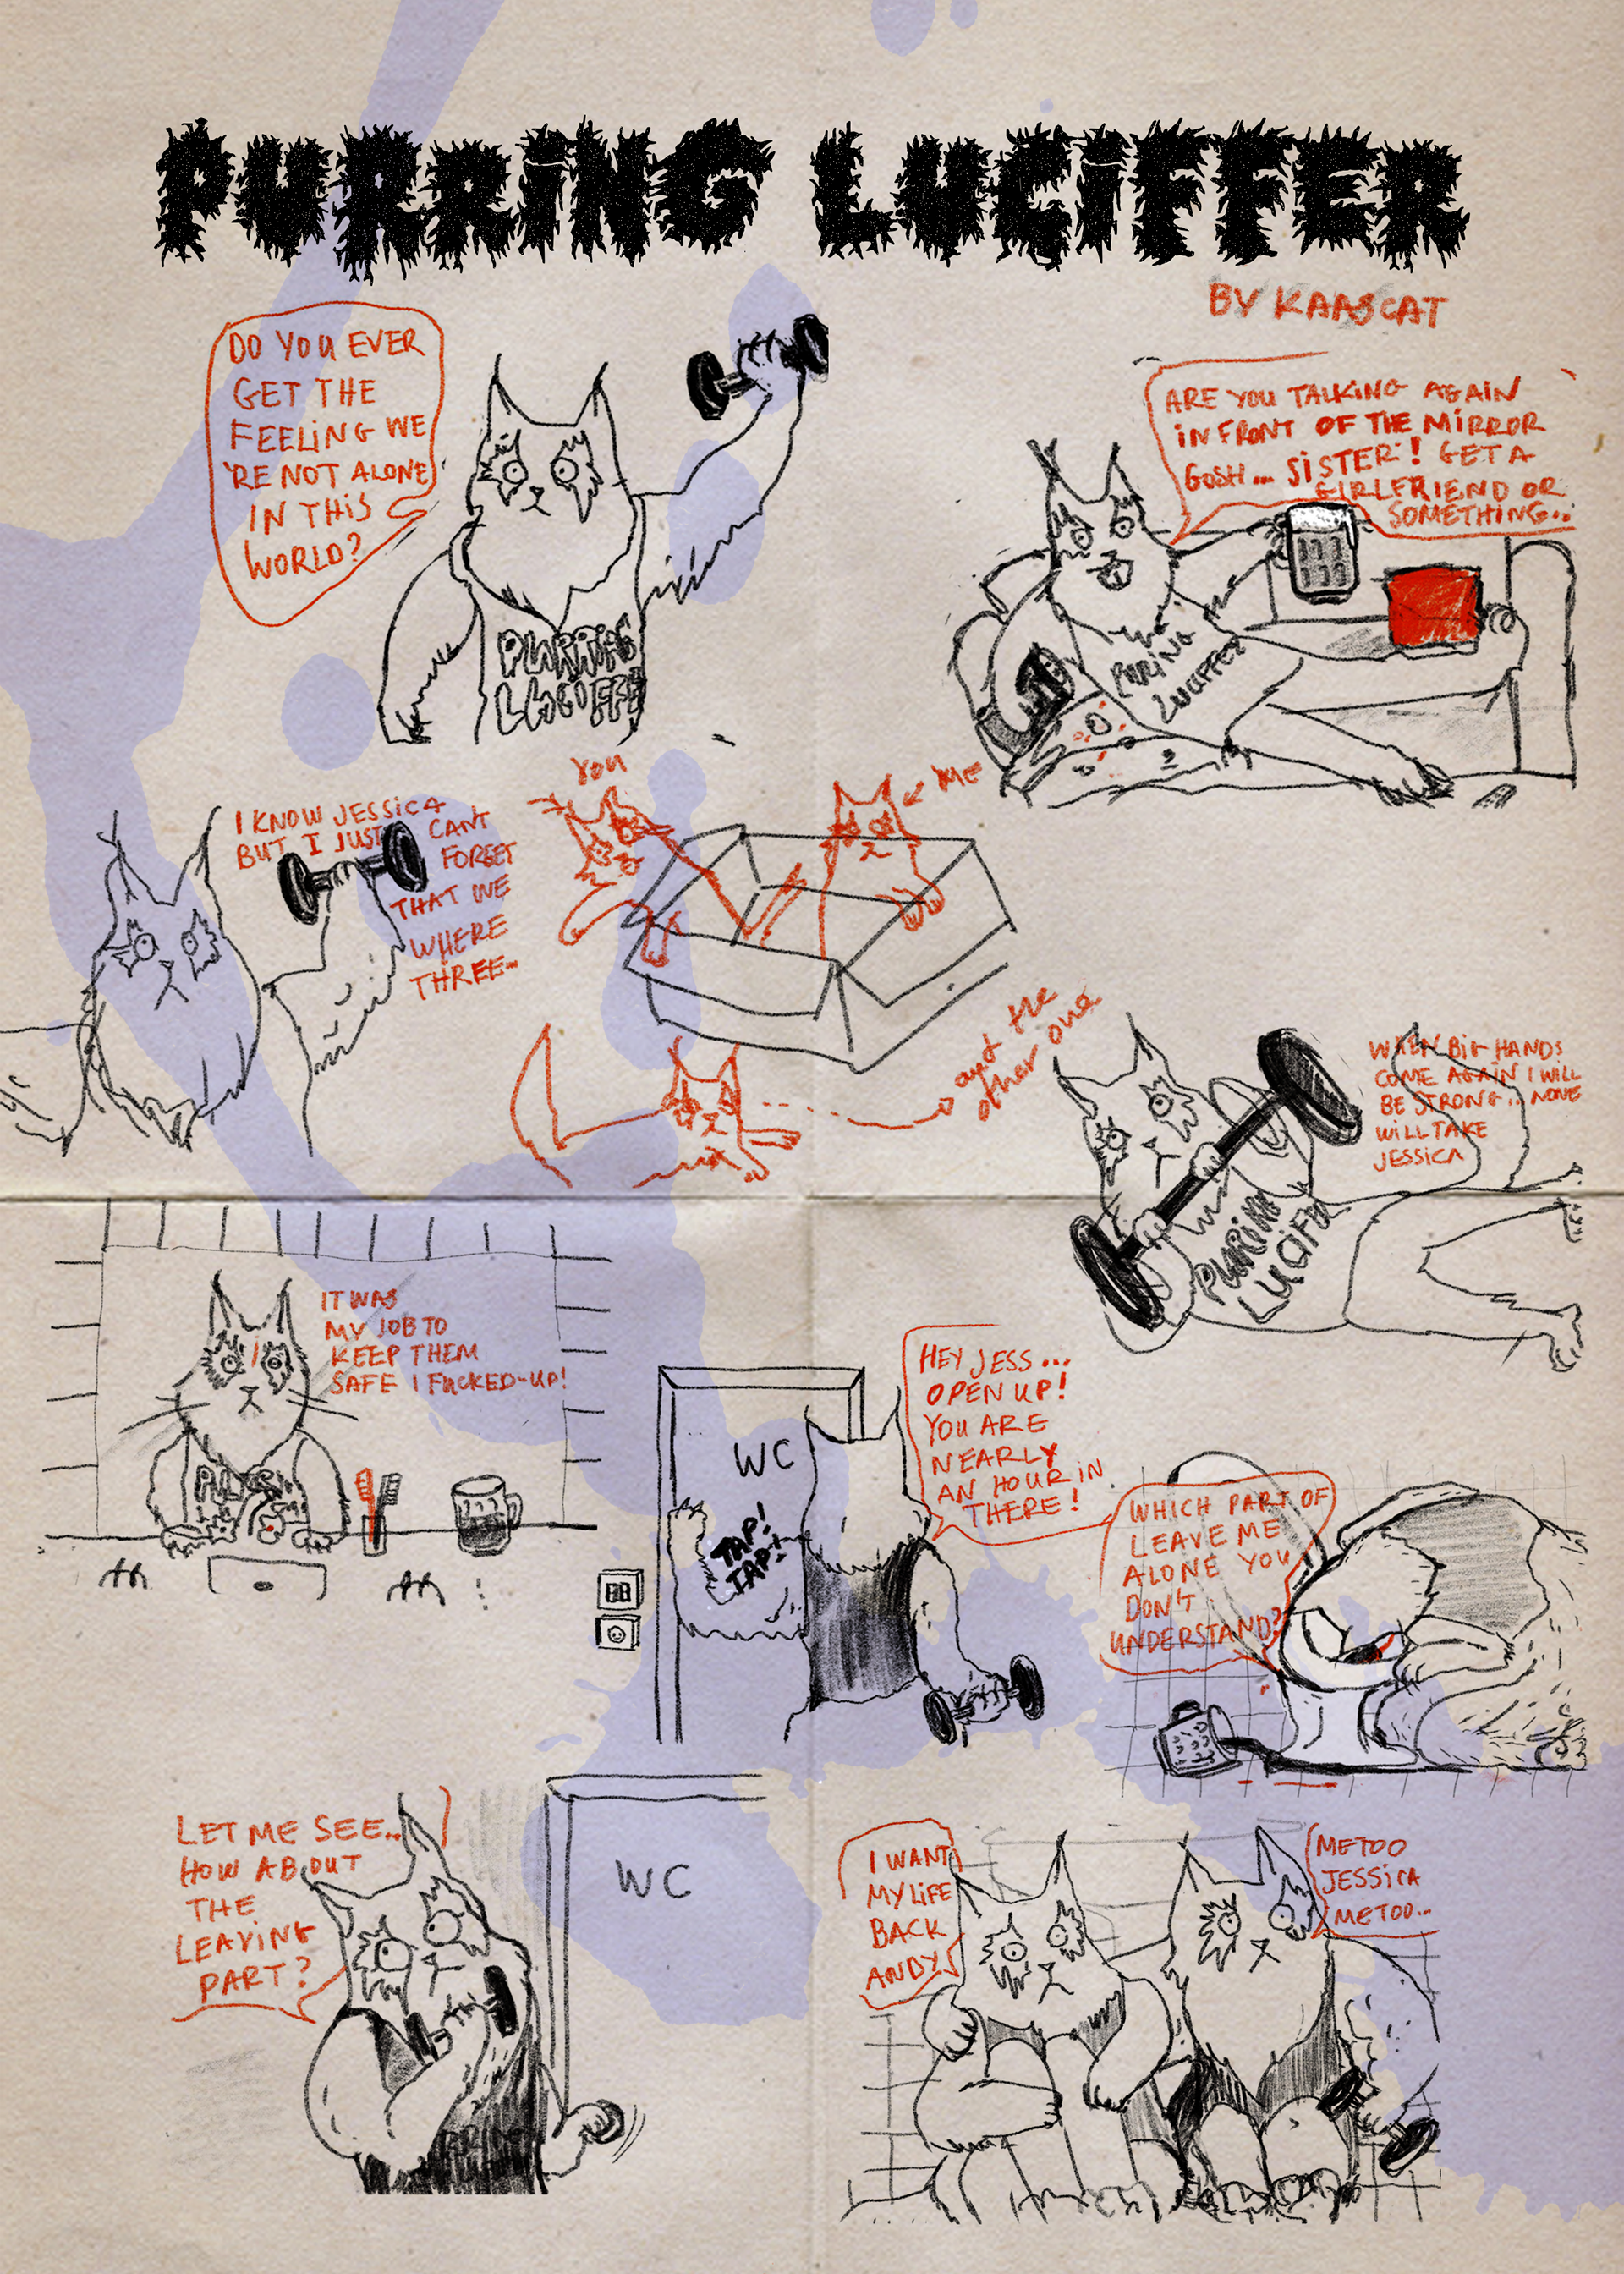 PURRiNG LUCiFFER
BY KAASCAT
DO YOU EVER
GET THE
FEELiNG WE
'RE NOT ALONE
IN THiS
WORLD?
PURRING
LUCiFFE
ARE YOU TALKiNG AGAiN
iN FRONT OF THE MiRROR
GOSH... SiSTER! GET A
GIRLFRIEND OR
SOMETHiNG...
PURiNG
LUCiFFER
I KNOW JESSiCA
BUT I JUST CANT
FORGET
THAT WE
WHERE
THREE...
You
ME
and the
other one
WHEN BiG HANDS
COME AGAiN I WiLL
BE STRONG... NONE
WiLL TAKE
JESSiCA
PURiNG
LUCiFE
IT WAS
MY JOB TO
KEEP THEM
SAFE I FUCKED-UP!
HEY JESS...
OPEN UP!
YOU ARE
NEARLY
AN HOUR iN
THERE!
WC
TAP!
TAP!
WHICH PART OF
LEAVE ME
ALONE YOU
DON'T
UNDERSTAND?
LET ME SEE...
HOW ABOUT
THE
LEAViNG
PART?
WC
I WANT
MY LiFE
BACK
ANDY
METOO
JESSiCA
METOO...